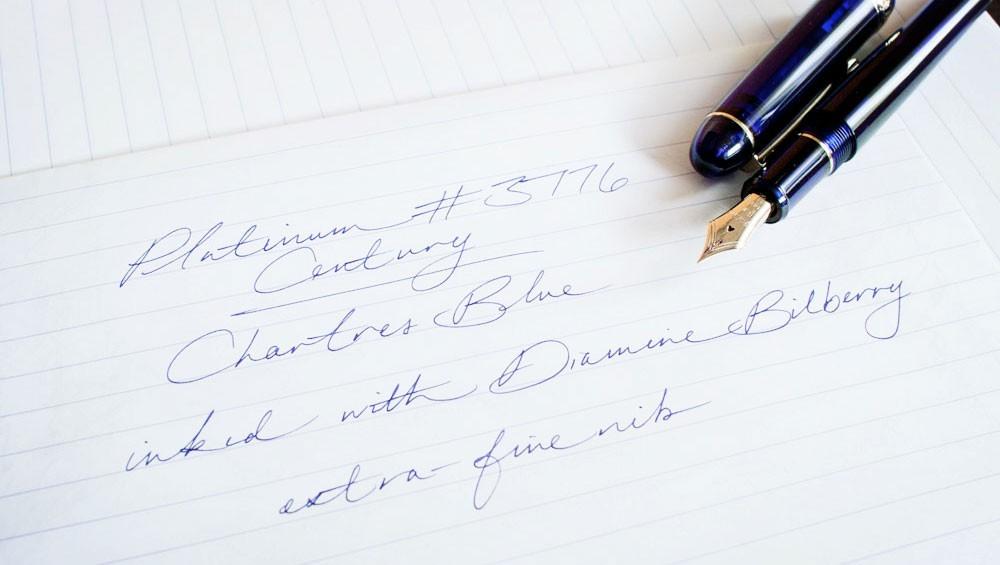 Platinum #3776
Century
Chartres Blue
inked with Diamine Bilberry
extra-fine nib